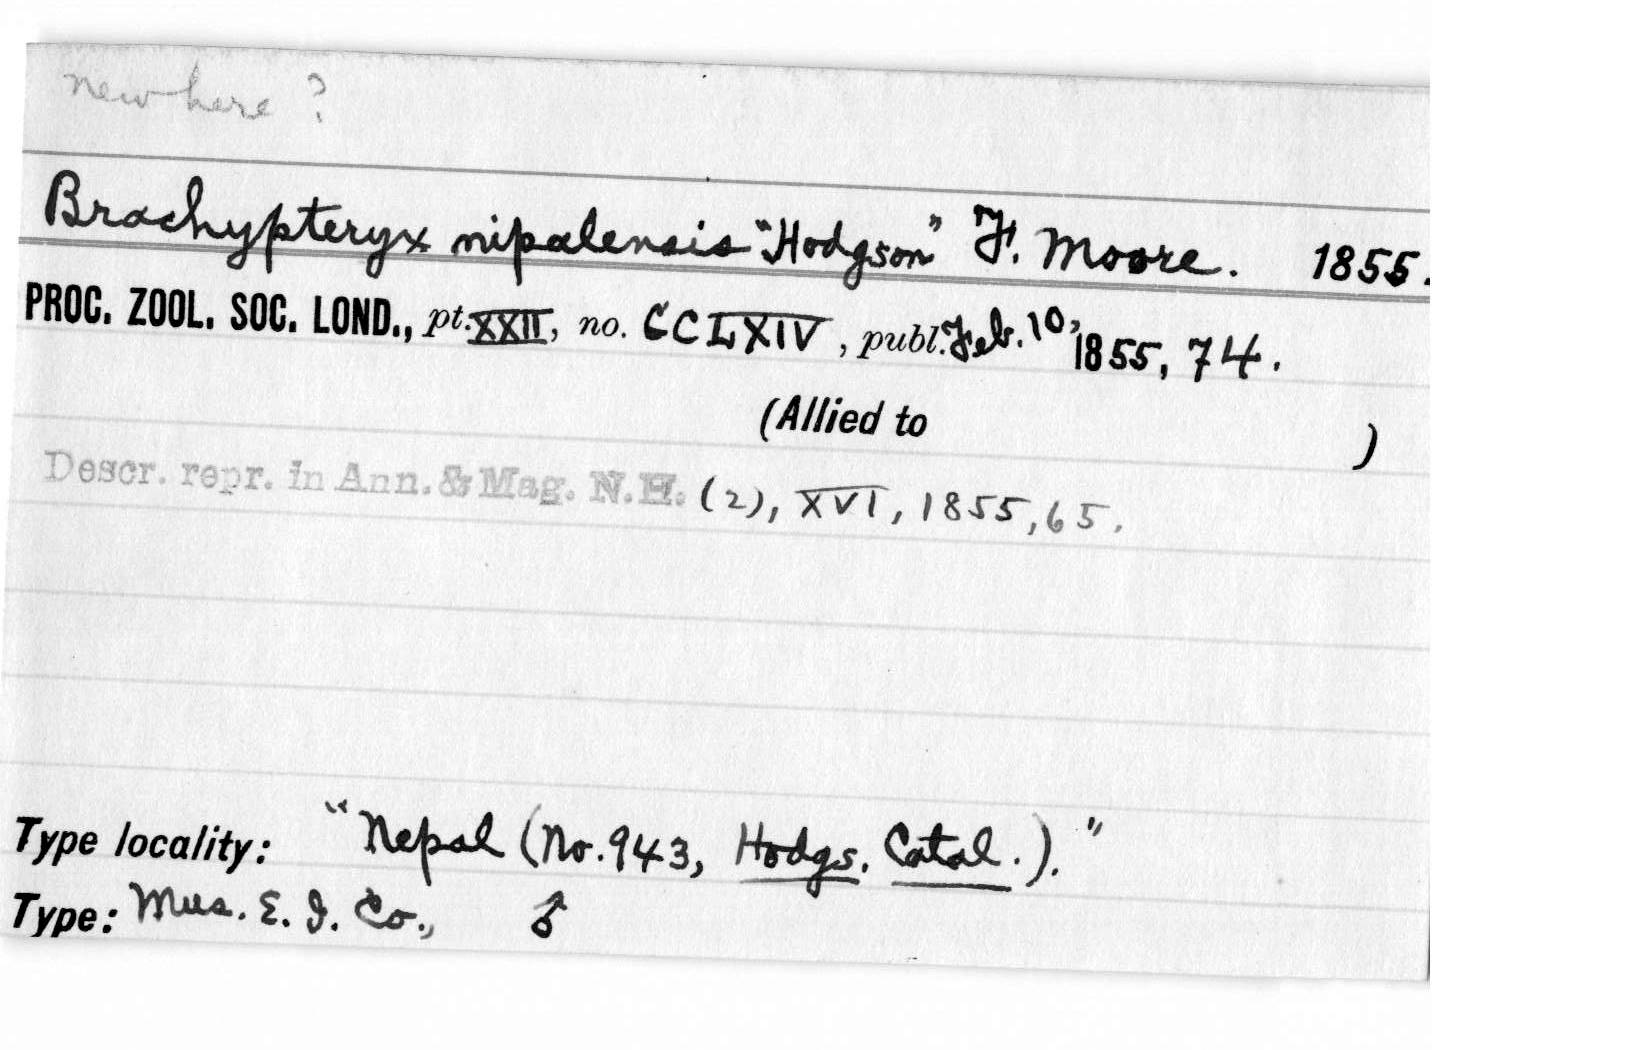 new here ?
Brachypteryx nipalensis "Hodgson" F. Moore. 1855.
PROC. ZOOL. SOC. LOND., pt. XXII, no. CCLXIV, publ. Feb. 10, 1855, 74.
(Allied to )
Descr. repr. in Ann. & Mag. N.H. (2), XVI, 1855, 65.
Type locality: "Nepal (No. 943, Hodgs. Catal.)."
Type: Mus. E. I. Co., ♂